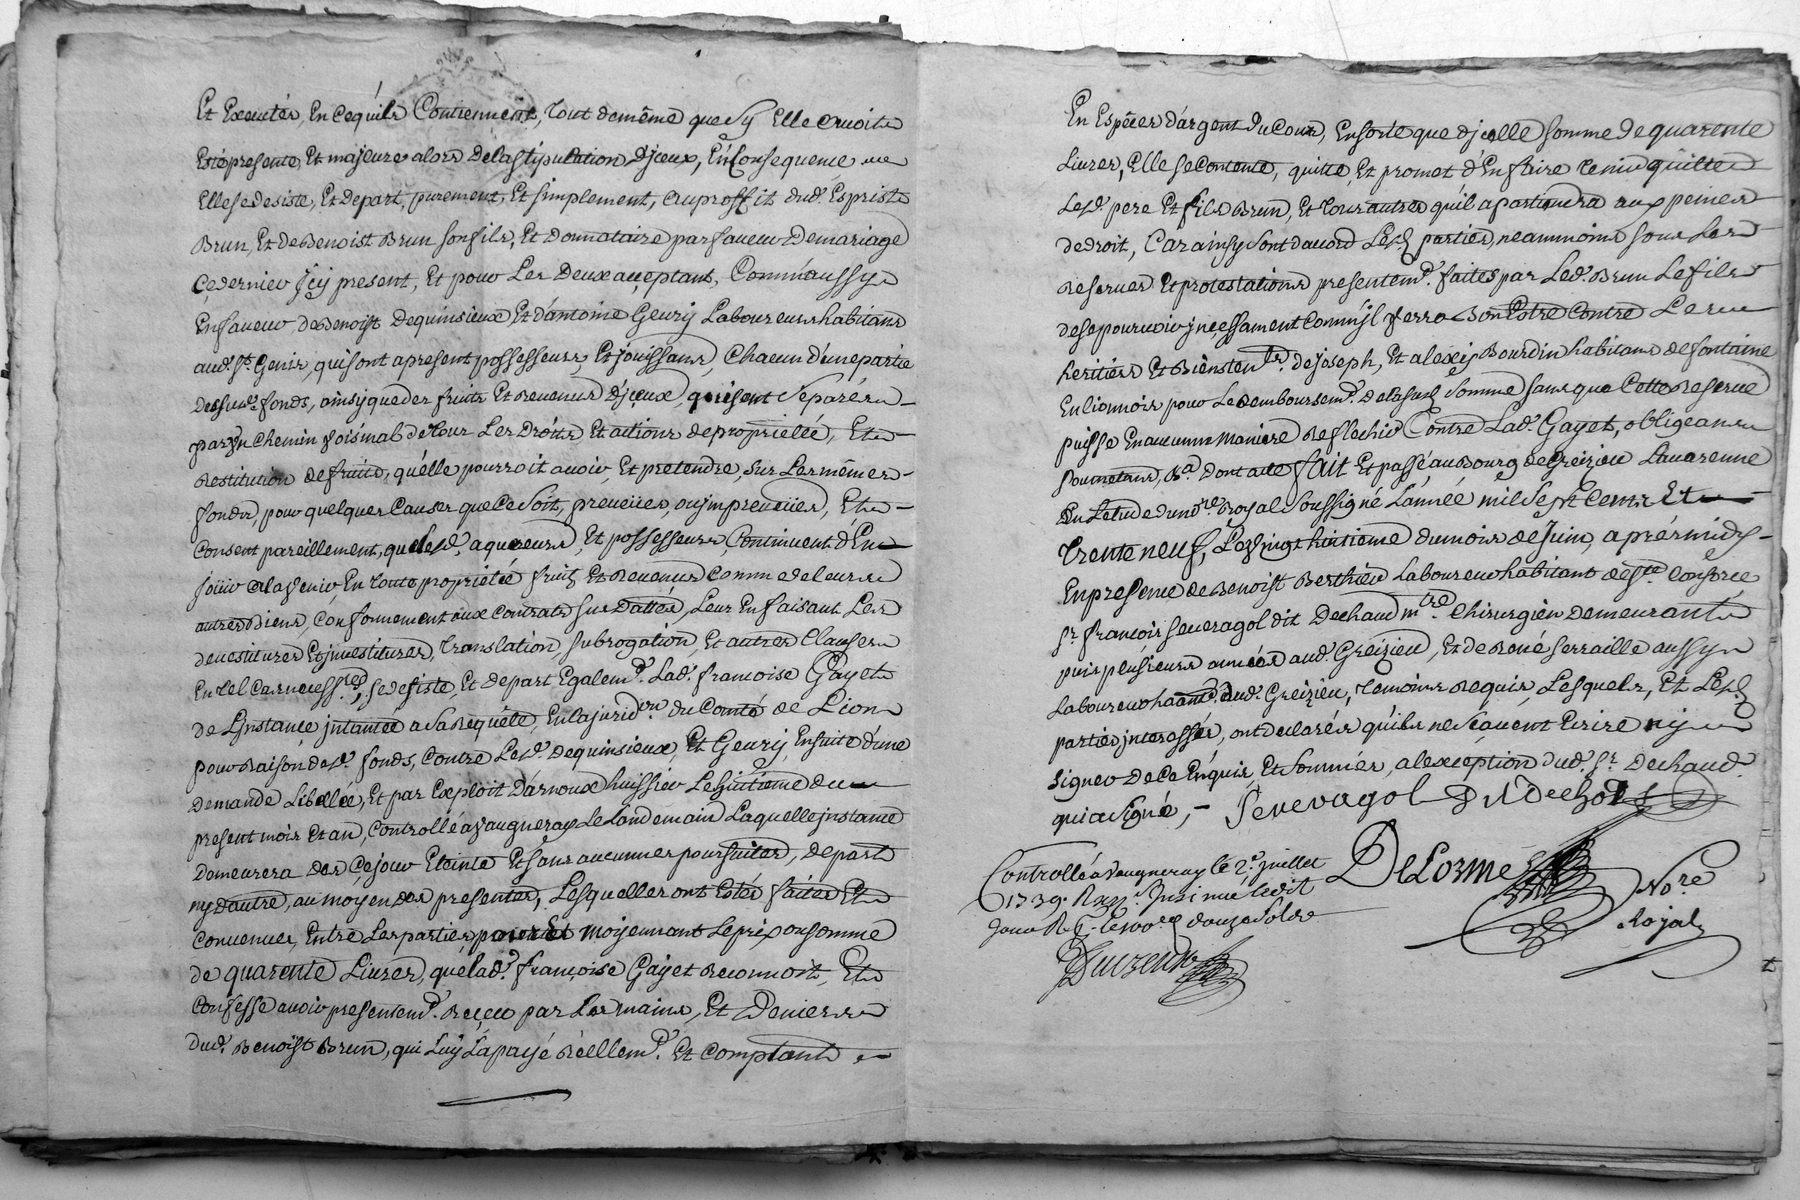 Et Executés, En cequ'ils Contiennent, tout demême que sy Elle auoit
Esté presente, Et majeure alors delastipulation d'jceux, En consequence
Elle se desiste, Et depart, purement, Et simplement, au proffit dud. Esprist
Brun, Et de Benoist Brun son fils, Et donnataire par faueur de mariage
ce dernier jcy present, Et pour Les deux acceptant, Comm'aussy
En faueur de Benoist Dequinsieux Et d'antoine Geury Laboureurs habitans
aud. st. Genis, qui sont apresent possesseurs, Et jouissans, chacun d'une partie
dessusd. fonds, ainsy que des fruits Et Reuenus d'jceux, qui sont separés
par un chemin voisinal de tous Les droits, Et actions de proprieté, Et
Restitution de fruits, qu'elle pourroit auoir, Et pretendre, sur Les mêmes
fonds, pour quelques causes que ce soit, preueües, ou jmpreueües, Et
consent pareillement, que lesd. aquereurs, Et possesseurs, continuent d'En
joüir alauenir En toute proprieté fruits Et Reuenus comme de leurs
autres Biens, conformement aux contrats sus dattés, Leur En faisant Les
deuestitures Et jnuestitures, translation, subrogation, Et autres clauses
En tel cas necess.res, se desiste, Et depart Egalem.t Lad. francoise Gayet
de L'jnstance jntantée a sa Requête, En la jurid.on du Comté de Lion
pour Raison desd. fonds, contre Lesd. Dequinsieux, Et Geury, En suite d'une
demande Libellée, Et par Exploit d'arnoux huissier Le huitieme du
present mois Et an, controllé a vaugneray Le Landemain Laquelle jnstance
demeurera des ce jour Eteinte Et sans aucunnes poursuites, de part
ny d'autre, au moyen des presentes, Lesquelles ont Estés faites Et
conuenues, Entre Les parties, moijennant Le prix ou somme
de quarente Liures, que lad.e françoise Gayet Reconnoit, Et
confesse auoir presentem.t Receu par Les mains, Et deniers
dud. Benoist Brun, qui Luy L'a payé Réellem.t Et comptant
En Espéces d'argent du Cour, En sorte que d'jcelle somme de quarente
Liures, Elle se contente, quitte, Et promet d'En faire tenir quittes
Lesd. pere Et fils Brun, Et tous autres qu'il apartiendra aux peines
de droit, Car ainsy sont d'accord Lesd. parties, neanmoins sous Les
Reserues Et protestations presentem.t faites par Led. Brun Le fils
de se pouruoir jncessament comm'jl verra Bon Estre contre Les
heritiers Et Biensten.rs de joseph, Et alexis Bourdin habitans de fontaine
En lionnois pour Le Remboursem.t de lasusd. somme sans que Cette Reserue
puisse En aucunne maniere Reflechir Contre Lad. Gayet, obligeans
soumetans, &a. dont acte fait Et passé, au Bourg de Greizieu Lauarenne
En L'etude du no.re Royal soussigné L'année mil sept Cents Et
trente neuf, Le vingt huitieme du mois de juin, aprés midy
En presence de Benoist Berthier Laboureur habitant de ste. Consorce
sr. françois seueragol dit Dechaud m.tre chirurgien demeurant
puis plusieurs années aud. Greizieu, Et de Roné serraille aussy
Laboureur habitt. dud. Greizieu, temoins Requis Lesquels, Et Lesd.
parties jnteressées, ont declarés qu'ils ne sçauent Ecrire ny
signer de ce Enquis, Et sommés, a lexception dud. sr. dechaud.
qui a signé,
Controllé a Vaugneray le 2e. juillet
1739. Insinué ledit
jour douze sols
Delorme
No.re
Royal